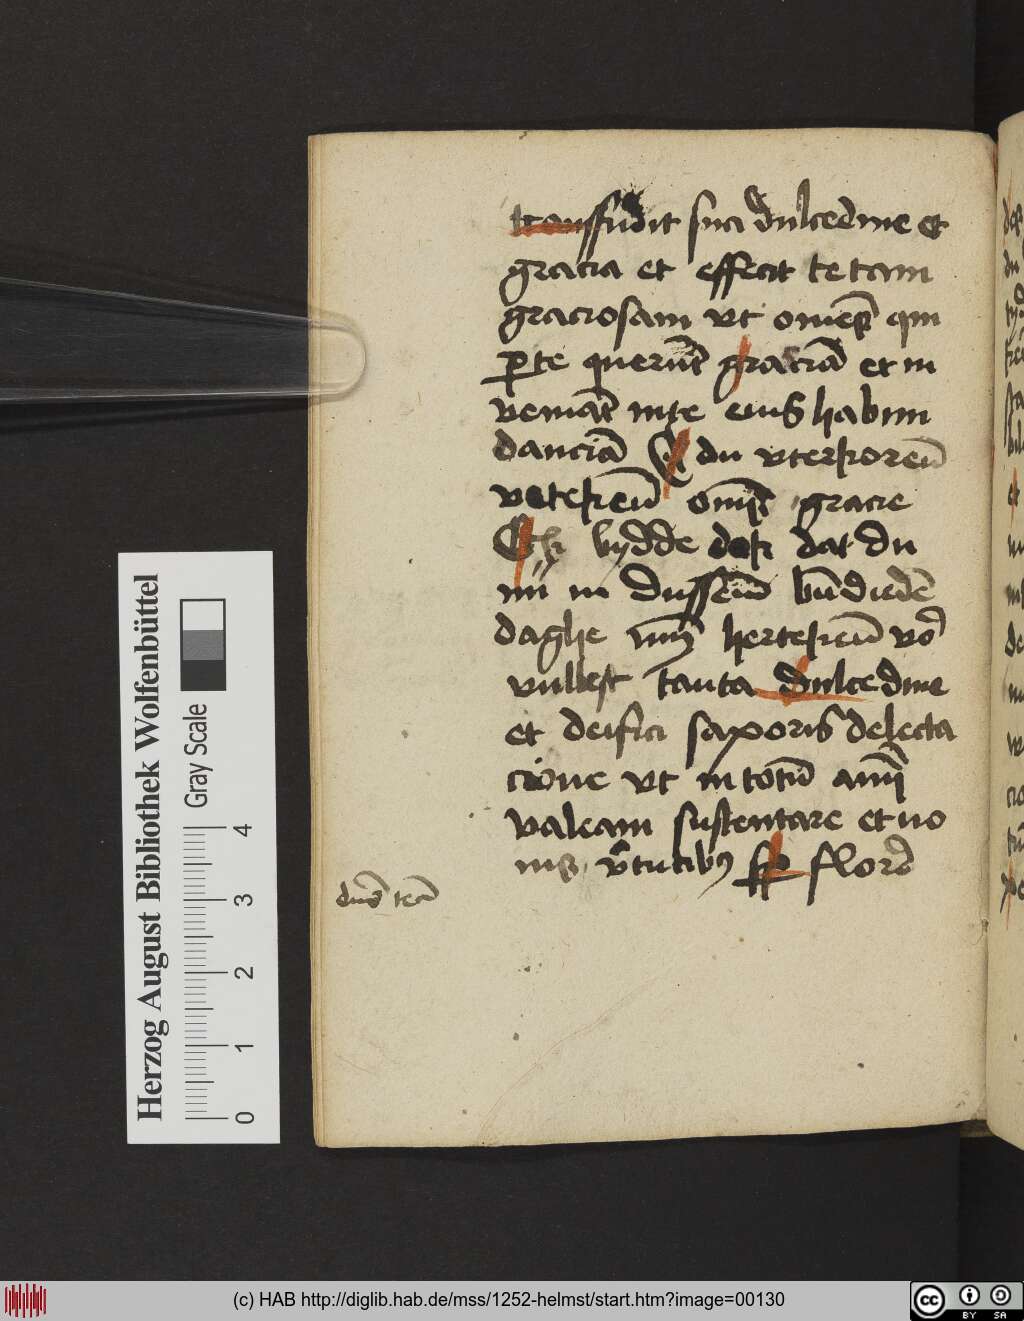 transfudit sua dulcedine et
gracia et effecit te tam
graciosam vt omnes qui
per te querunt graciam et in
ueniant in te eius habun
danciam du vterkoren
vetekeu omnis gracie
Ick bydde dek dat du
mi in dussem bundichen
daghe mi herteken vor
vullest tanta dulcedine
et deifici saporis delecta
cione vt in totum anni
valeam sustentare et no
uis virtutibus flore
Herzog August Bibliothek Wolfenbüttel
Gray Scale
0 1 2 3 4
(c) HAB http://diglib.hab.de/mss/1252-helmst/start.htm?image=00130
cc BY SA